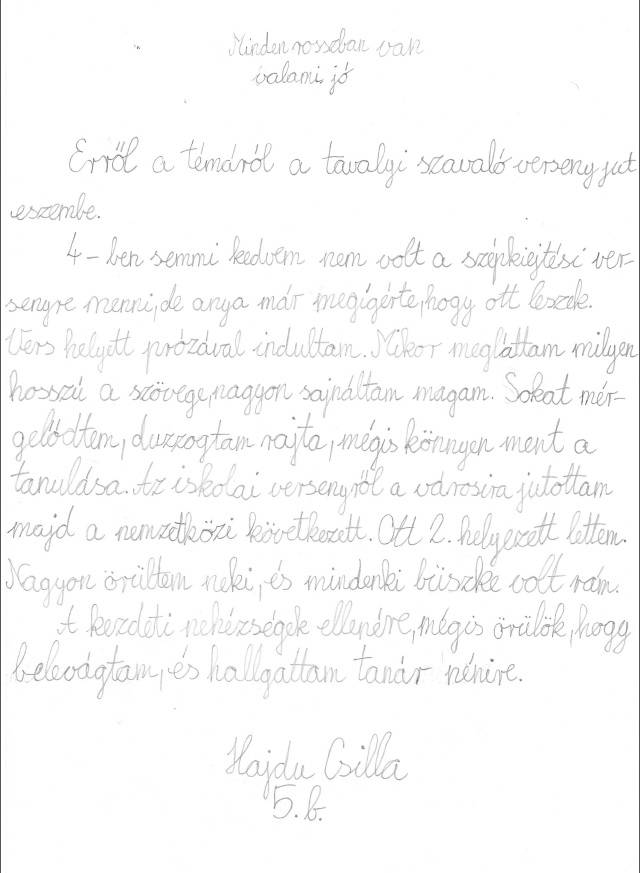 Minden rosszban van
valami jó
Erről a témáról a tavalyi szavaló verseny jut
eszembe.
4-ben semmi kedvem nem volt a szépkiejtési ver-
senyre menni, de anya már megígérte, hogy ott leszek.
Vers helyett prózával indultam. Mikor megláttam milyen
hosszú a szövege, nagyon sajnáltam magam. Sokat mér-
gelődtem, duzzogtam rajta, mégis könnyen ment a
tanulása. Az iskolai versenyről a városira jutottam
majd a nemzetközi következett. Ott 2. helyezett lettem.
Nagyon örültem neki, és mindenki büszke volt rám.
A kezdeti nehézségek ellenére, mégis örülök, hogy
belevágtam, és hallgattam tanár nénire.
Hajdu Csilla
5. b.